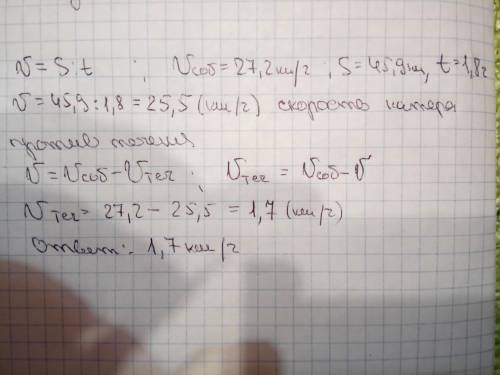 v = S : t ; Vсоб = 27,2 км/г ; S = 45,9 км, t = 1,8 г
v = 45,9 : 1,8 = 25,5 (км/г) скорость катера
против течения
v = Vсоб – Vтег ; Vтег = Vсоб – v
Vтег = 27,2 – 25,5 = 1,7 (км/г)
Ответ: 1,7 км/г